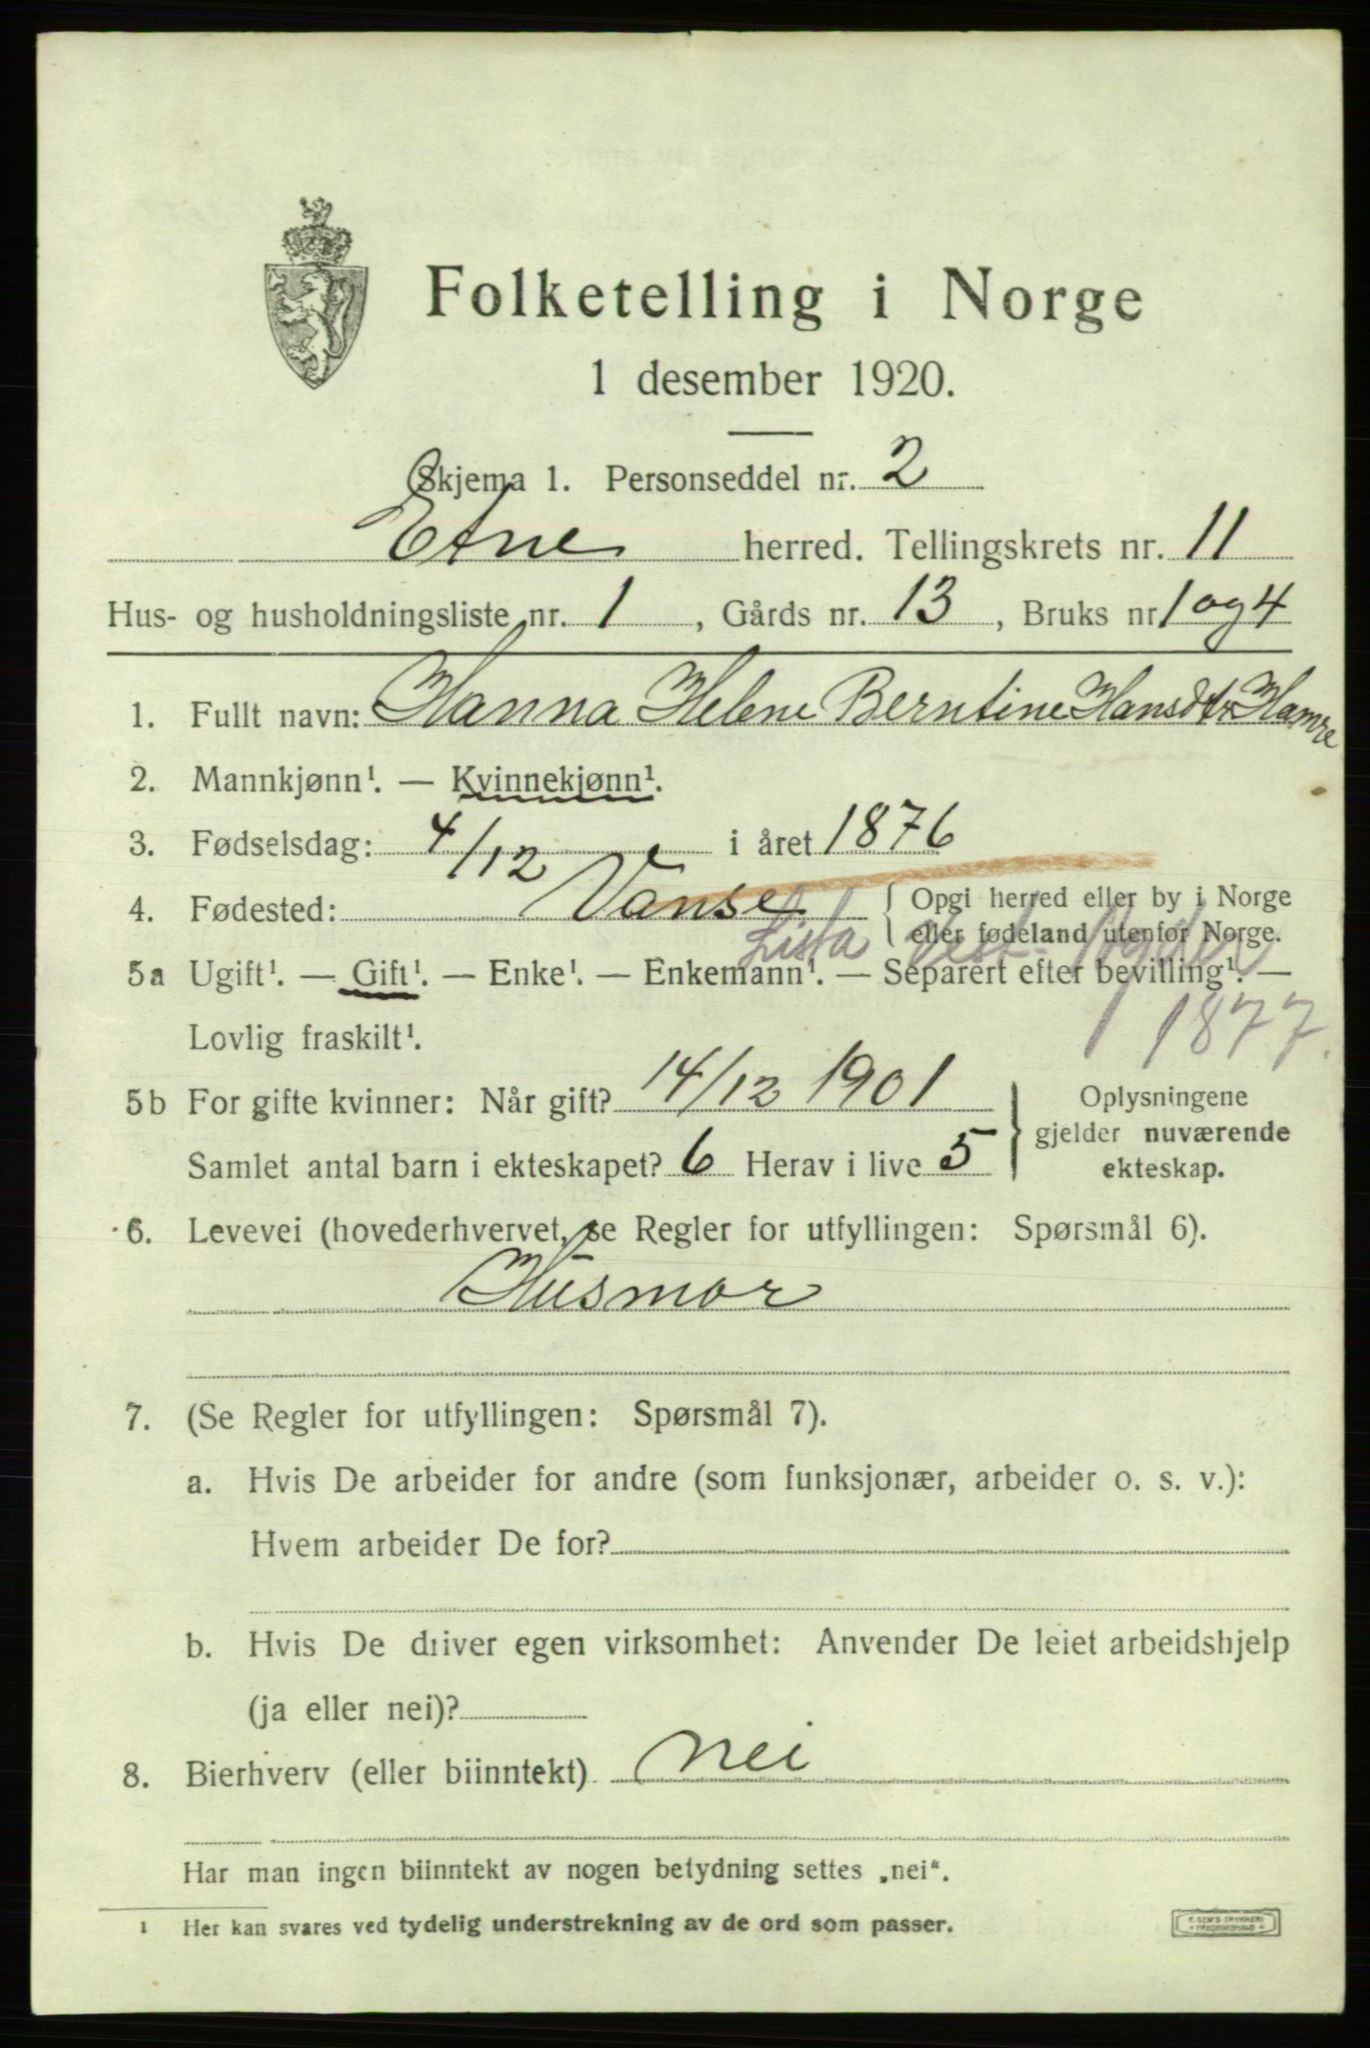 Folketelling i Norge
1 desember 1920.
Skjema 1. Personseddel nr. 2
Etne herred. Tellingskrets nr. 11
Hus- og husholdningsliste nr. 1, Gårds nr. 13, Bruks nr 1 og 4
1. Fullt navn: Hanna Helene Berntine Hansdtr Hamre
2. Mannkjønn¹. — Kvinnekjønn¹.
3. Fødselsdag: 4/12 i året 1876
4. Fødested: Vanse { Opgi herred eller by i Norge
eller fødeland utenfor Norge.
Lista Vest-Agder
5a Ugift¹. — Gift¹. — Enke¹. — Enkemann¹. — Separert efter bevilling¹. —
1877.
Lovlig fraskilt¹.
5b For gifte kvinner: Når gift? 14/12 1901
Samlet antal barn i ekteskapet? 6 Herav i live 5
Oplysningene
gjelder nuværende
ekteskap.
6. Levevei (hovederhvervet, se Regler for utfyllingen: Spørsmål 6).
Husmor
7. (Se Regler for utfyllingen: Spørsmål 7).
a. Hvis De arbeider for andre (som funksjonær, arbeider o. s. v.):
Hvem arbeider De for?
b. Hvis De driver egen virksomhet: Anvender De leiet arbeidshjelp
(ja eller nei)?
8. Bierhverv (eller biinntekt) nei
Har man ingen biinntekt av nogen betydning settes „nei“.
¹ Her kan svares ved tydelig understrekning av de ord som passer.